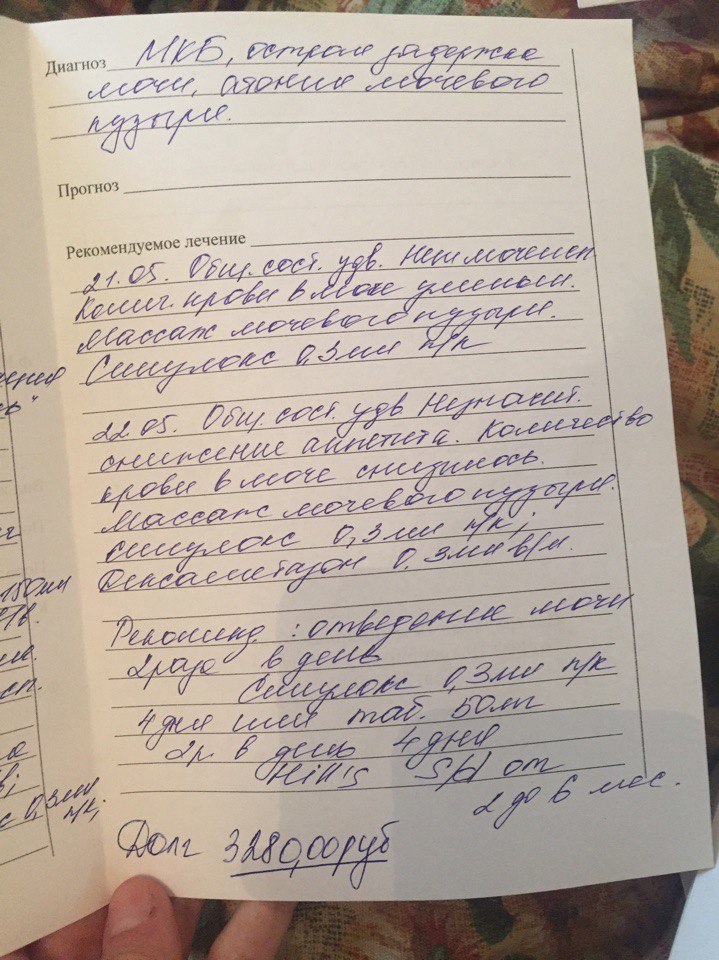 Диагноз МКБ, острая задержка
мочи, атония мочевого
пузыря.
Прогноз
Рекомендуемое лечение
21.05. Общ. сост. удв.
Колич. крови в моче уменьш.
Массаж мочевого пузыря.
Синулокс 0,3мл п/к
22.05. Общ. сост. удв Незначит.
снижение аппетита. Количество
крови в моче снизилось.
Массаж мочевого пузыря.
Синулокс 0,3мл п/к,
Дексаметазон 0,3мл в/м.
Рекоменд : отведение мочи
2 раза в день
Синулокс 0,3мл п/к
4 дня или таб. 50мг
2р. в день 4 дня
Hill's S/d от
2 до 6 мес.
Долг 3280,00руб
150мл
0,3мл
п/к,